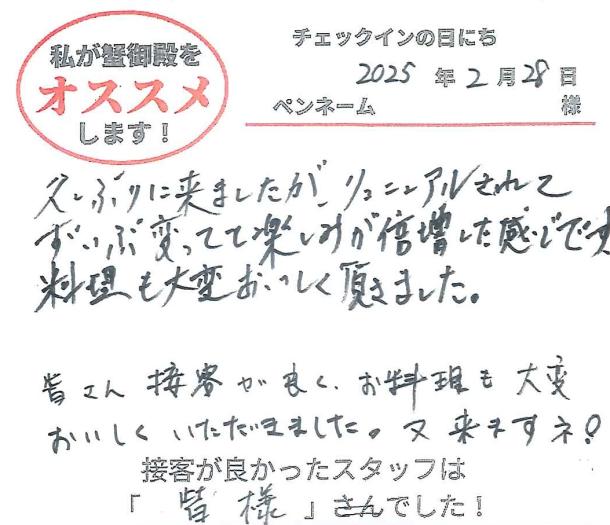 私が蟹御殿を
オススメ
します！
チェックインの日にち
2025 年 2 月 28 日
ペンネーム 様
久しぶりに来ましたが、リニューアルされて
ずいぶ変ってて楽しみが倍増した感じです
料理も大変おいしく頂きました。
皆さん 接客が良く、お料理も 大変
おいしく いただきました。又 来ますネ!
接客が良かったスタッフは
「 皆様 」さんでした！